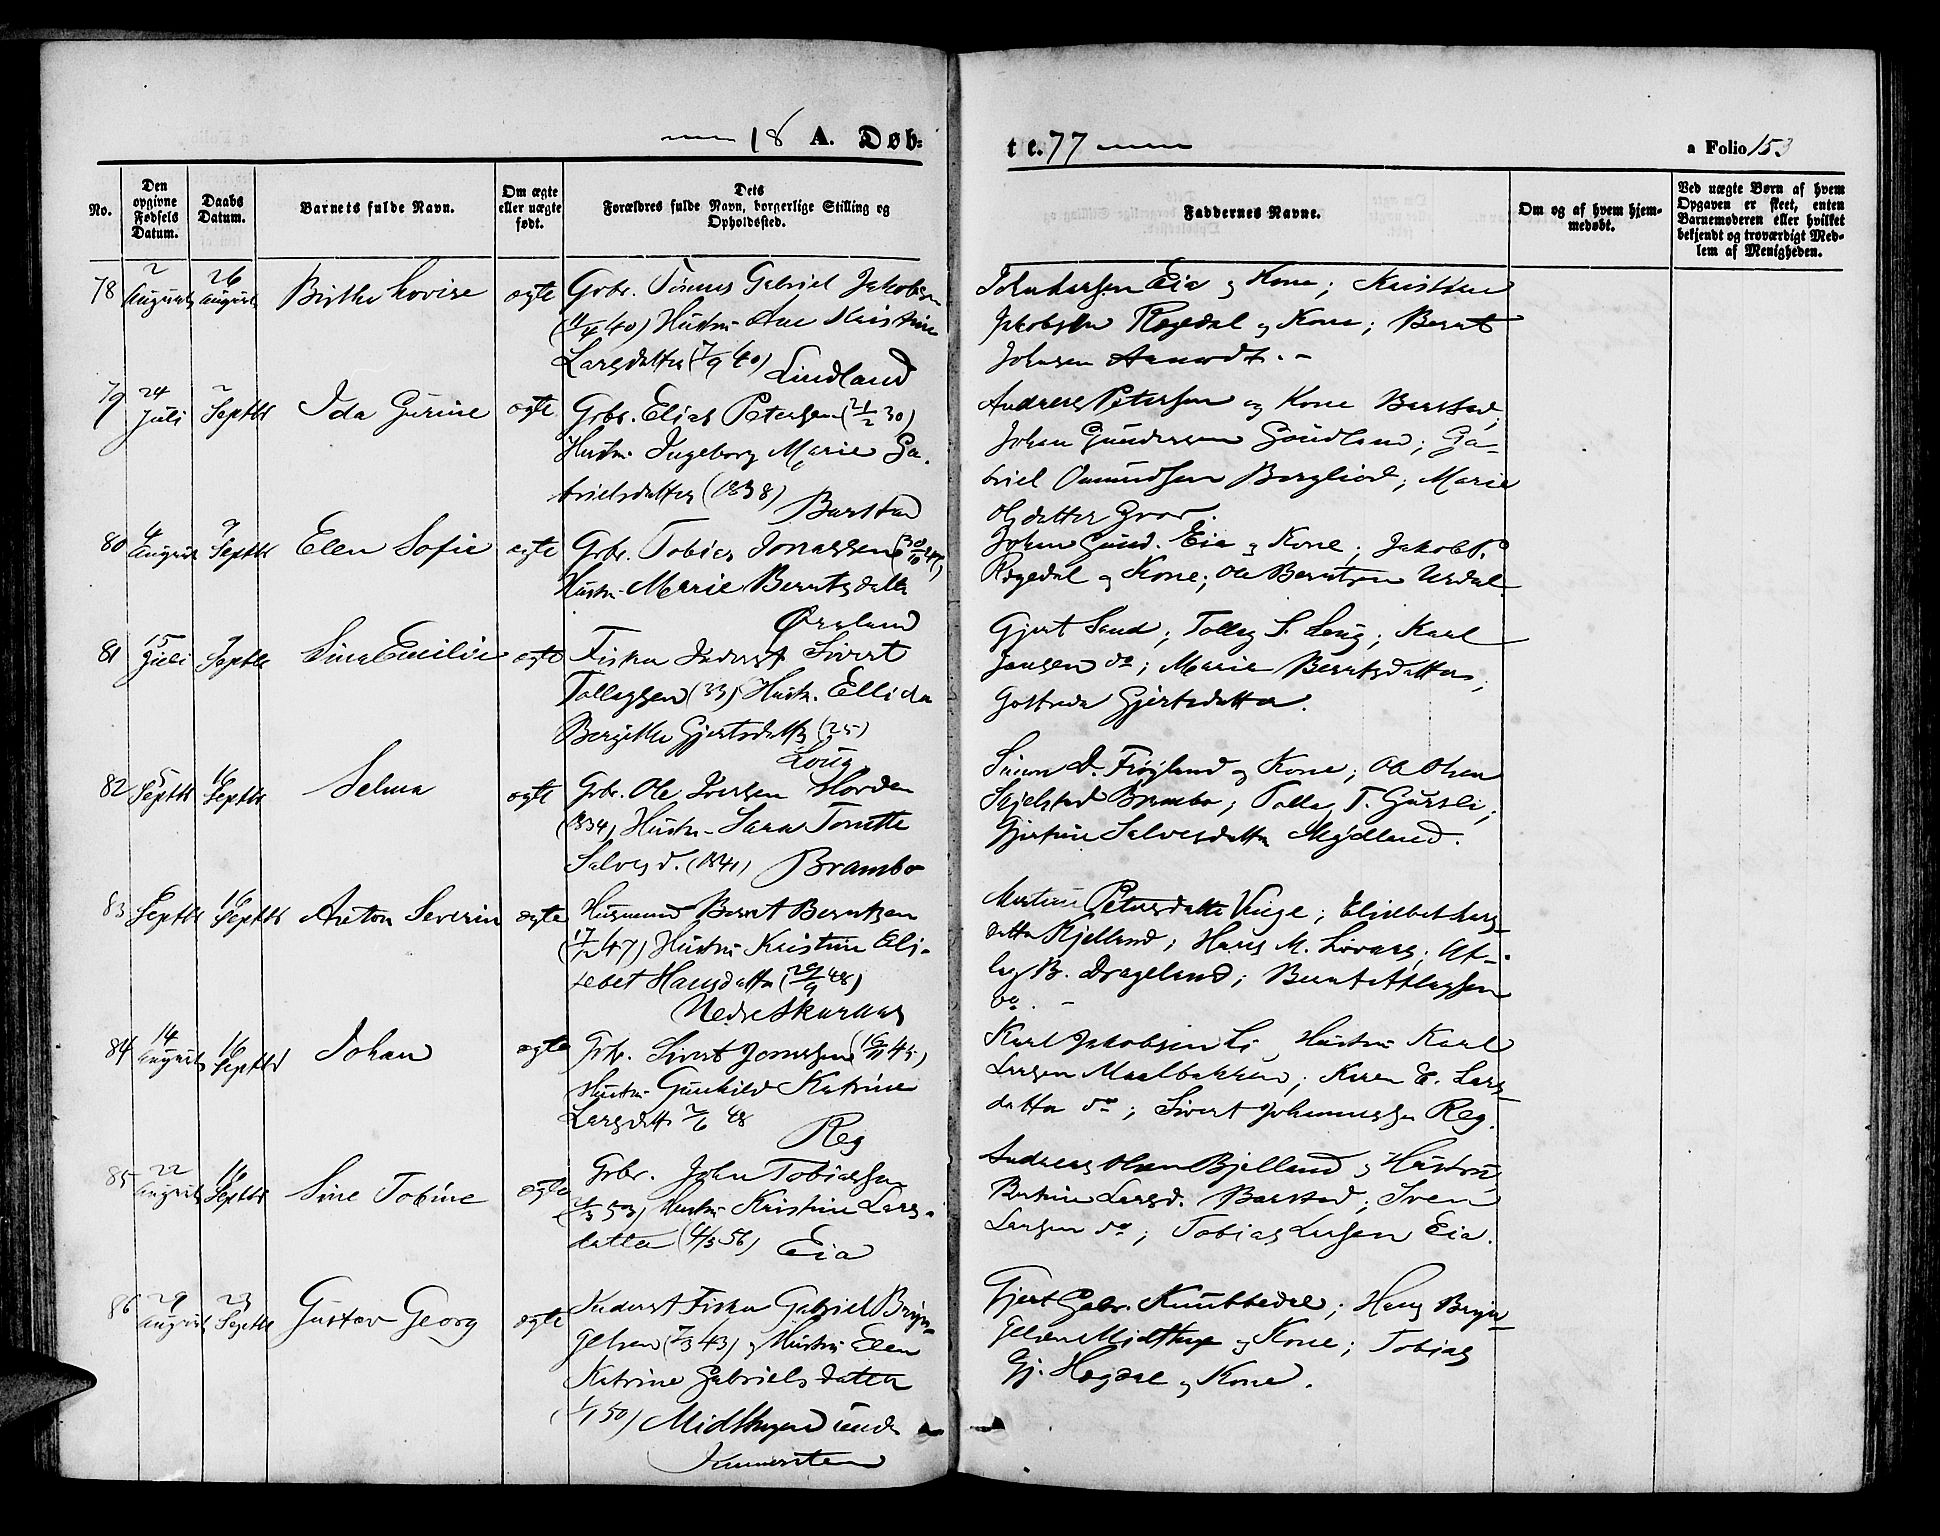 18 A. Døb-
te. 77
a Folio 153
No.
Den opgivne Fødsels Datum.
Daabs Datum.
Barnets fulde Navn.
Om ægte eller uægte født.
Dets
Forældres fulde Navn, borgerlige Stilling og
Opholdssted.
Faddernes Navne.
Om og af hvem hjem-
medøbt.
Ved uægte Børn af hvem
Opgaven er skeet, enten
Barnemoderen eller hvilket
bekjendt og troværdigt Med-
lem af Menigheden.
78 2 August 26 August Birthe Lovise ægte Grbr. Tønnes Gabriel Jakobsen
(11/4 40) Hustru Ane Kristine
Larsdatter (7/9 40) Lindland
Kone; Kristian
Jakobsen Rægedal og Kone; Bernt
Johnsen
79 24 Juli 2 Septbr Ida Gurine ægte Grbr. Elias Petersen (21/2 30)
Hustru Ingeborg Marie Ga-
brielsdatter (1838) Barstad
Andreas Petersen og Kone Barstad;
Johan Gundersen Goudland; Ga-
briel Omundsen Bergliod; Marie
Olsdatter
80 4 August 2 Septbr Elen Sofie ægte Grbr. Tobias Jonassen (30/10 47)
Hustru Marie Berntsdatter
Ørsland
Johan Gund. Eia og Kone; Jakob T.
Rægedal og Kone; Ole Berntsen Urdal
81 15 Juli 2 Septbr Sina Emilie ægte Fisker Inderst Sivert
Tollagsen (33) Hustr. Ellida
Bergitte Gjertsdatter (25)
Loug
Gjert Sand; Tolleg S. Loug; Karl
Jensen do; Marie Berntsdatter;
Gjertsdatter.
82 5 Septbr 16 Septbr Selma ægte Grbr. Ole Iversen Horden
(1834) Hustru Sara Tonette
Salvesd. (1841) Brambo
Simon D. Frøjland og Kone; Ole Olsen
Skjelstad Brambo; Tolla T. Gursli;
Gjertine Salvesdatter Mydland.
83 6 Septbr 16 Septbr Anton Severin ægte Husmand Bernt Berntsen
(17/2 47) Hustru Kristine Eli-
sebet Hansdatter (29/9 48)
Nedre Skaraas
Petersdatter Vinge; Elisebet Lars-
datter Kjelland; Hans M. Lovaas; At-
lag B. Drageland; Bernt Atlagsen
do.
84 14 August 16 Septbr Johan ægte Grbr. Sivert Jonassen (16/11 45)
Hustru Gunhild Katrine
Larsdatter 2/6 48
Reg
Karl Jakobsen Li, Hustru Karl
Larsen Maalbakken; Karen E. Lars-
datter do; Sivert Johannessen Reg.
85 22 August 16 Septbr Sine Tobine ægte Grbr. John Tobiassen
53) Hustru Kristine Lars-
datter (4/5 56) Eia
Andreas Olsen Bjelland og Hustru;
Bertine Larsd. Barstad; Sven
Larsen do; Tobias Larsen Eia.
86 29 August 23 Septbr Gustav Georg ægte Inderst Fisker Gabriel Bryn-
gelsen (7/3 43) og Hustru Elen
Katrine Gabrielsdatter
(1/1 50) Midthagen under
Immersten
Gjert Gabr. Knubbedal; Hans Bryn-
gelsen Midthage og Kone; Tobias
Gj. Hægdal og Kone.